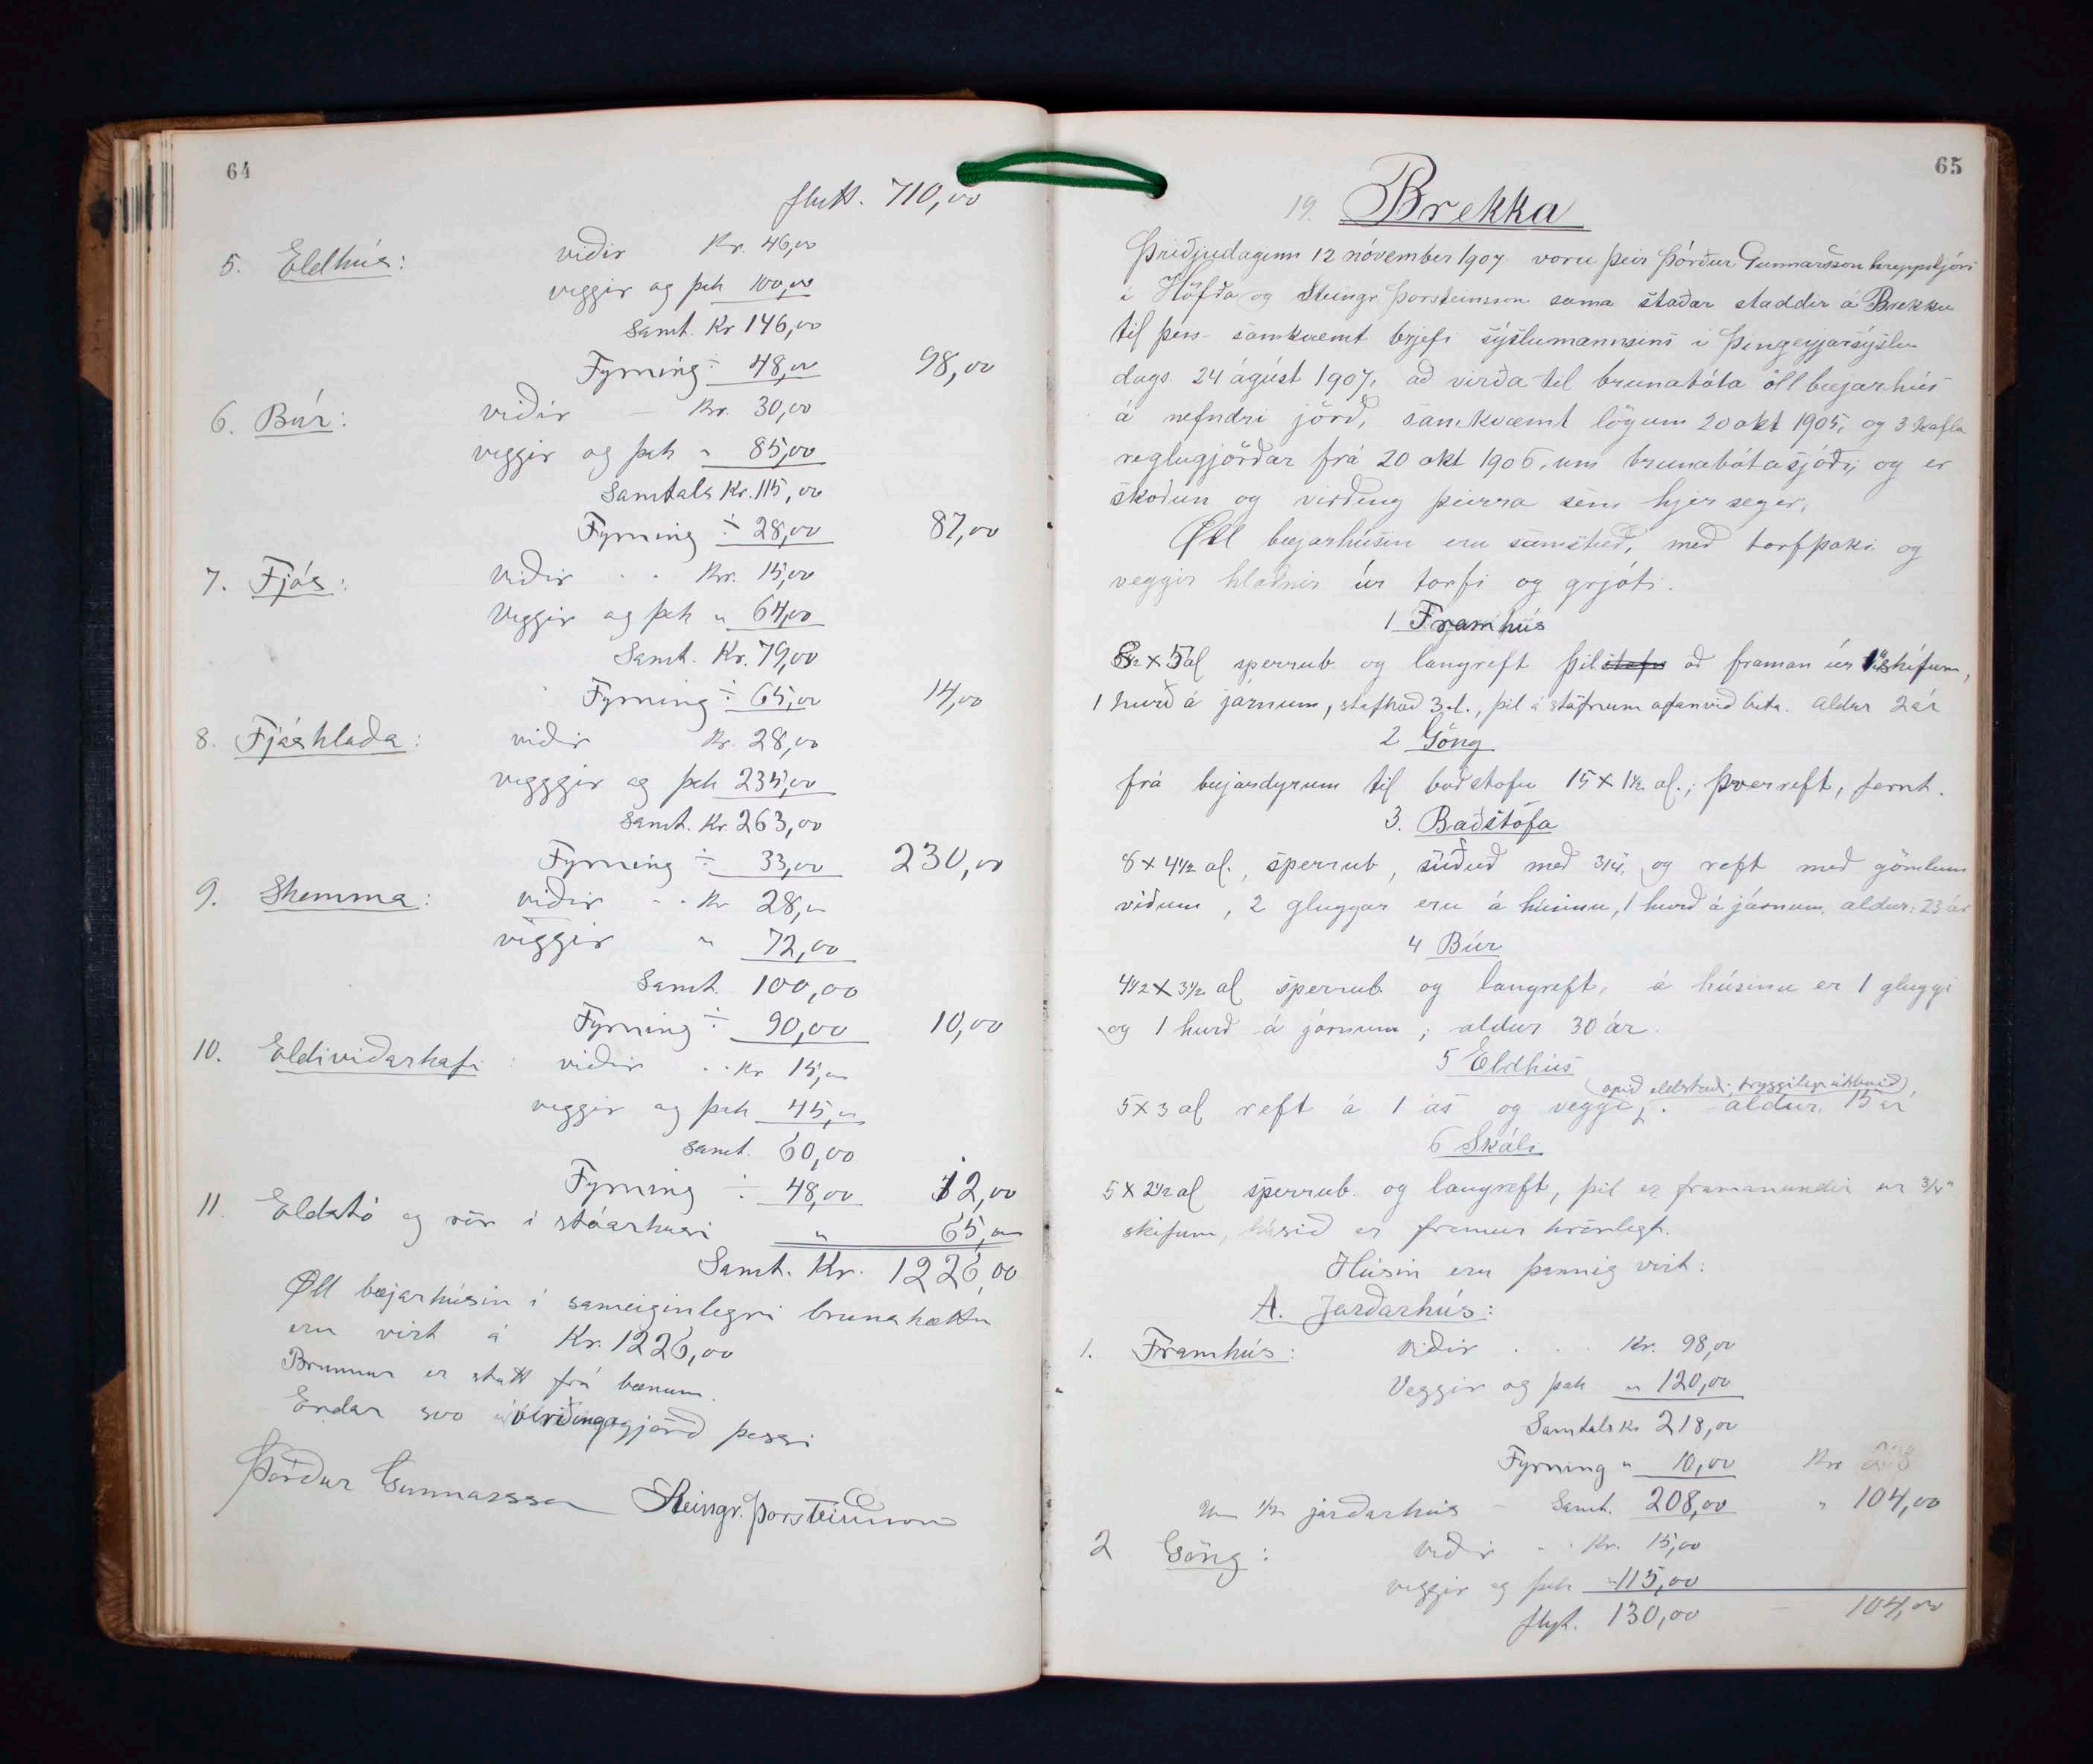 64
flutt. 710,00
5. Eldhús: viðir Kr. 46,00
veggir og þek 100,00
Samt. Kr 146,00
Fyrning ÷ 48,00 98,00
6. Búr: viðir — Kr. 30,00
veggir og þek " 85,00
Samtals Kr. 115,00
Fyrning ÷ 28,00 87,00
7. Fjós: viðir . . Kr. 15,00
Veggir og þek " 64,00
Samt. Kr. 79,00
Fyrning ÷ 65,00 14,00
8. Fjóshlaða: viðir Kr. 28,00
vegggir og þek 235,00
Samt. Kr 263,00
Fyrning ÷ 33,00 230,00
9. Skemma: viðir . . Kr 28,00
veggir " 72,00
Samt. 100,00
Fyrning ÷ 90,00 10,00
10. Eldiviðarkofi: viðir . . Kr 15,00
veggir og þek 45,00
samt. 60,00
Fyrning ÷ 48,00 12,00
11. Eldstó og rör i stóarhusi " 65,00
Samt. Kr. 1226,00
Øll bæjarhúsin i sameiginlegri brunahættu
eru virt á Kr. 1226,00
Brunnur er stutt frá bænum.
Endar svo virðingagjörð þessi
Þórður Gunnarsson Steingr. Þorsteinsson
65
19. Brekka
Þriðjudaginn 12 nóvember 1907. voru þeir Þórður Gunnarsson hreppstjóri
i Höfða og Steingr Þorsteinsson sama staðar staddir á Brekku
til þess samkvæmt brjefi sýslumannsins i Þingeyjarsýslu
dags. 24 ágúst 1907, að virða til brunabóta öll bæjarhús
á nefndri jörð, samkvæmt lögum 20 okt 1905, og 3 kafla
reglugjörðar frá 20 okt 1906, um brunabótasjóði, og er
skoðun og virðing þeirra sem hjer segir.
Øll bæjarhúsin eru samstæð, með torfþaki og
veggir hlaðnir úr torfi og grjóti.
1 Framhús
8½ x 5 al sperrub. og langreft þil að framan úr 1" skífum,
1 hurð á járnum, stafhæð 3 al., þil á stöfnum ofanvið bita. aldur 2 ár
2 Göng
frá bæjardyrum til baðstofu 15 x 1½ al.; þverreft, fornt.
3. Baðstofa
8 x 4½ al., sperrub, súðuð með 3/4", og reft með gömlum
viðum, 2 gluggar eru á húsinu, 1 hurð á járnum. aldur: 23 ár
4 Búr
4½ x 3½ al sperrub. og langreft, á húsinu er 1 gluggi
og 1 hurð á járnum; aldur 30 ár.
5 Eldhús
(opið eldstæði; tryggilega útbúið)
5 x 3 al reft á 1 ás og veggi. aldur 15 ár
6 Skáli
5 x 2½ al sperrub. og langreft, þil er framanundir úr 3/4"
skífum, húsið er fremur hrörlegt.
Húsin eru þannig virt:
A. Jarðarhús:
1. Framhús: viðir . . . Kr. 98,00
Veggir og þak " 120,00
Samtals Kr 218,00
Fyrning " 10,00 Kr
½ jarðarhús — Samt. 208,00 " 104,00
2 Göng: viðir . . Kr. 15,00
veggir og þek " 115,00
flyt. 130,00 — 104,00